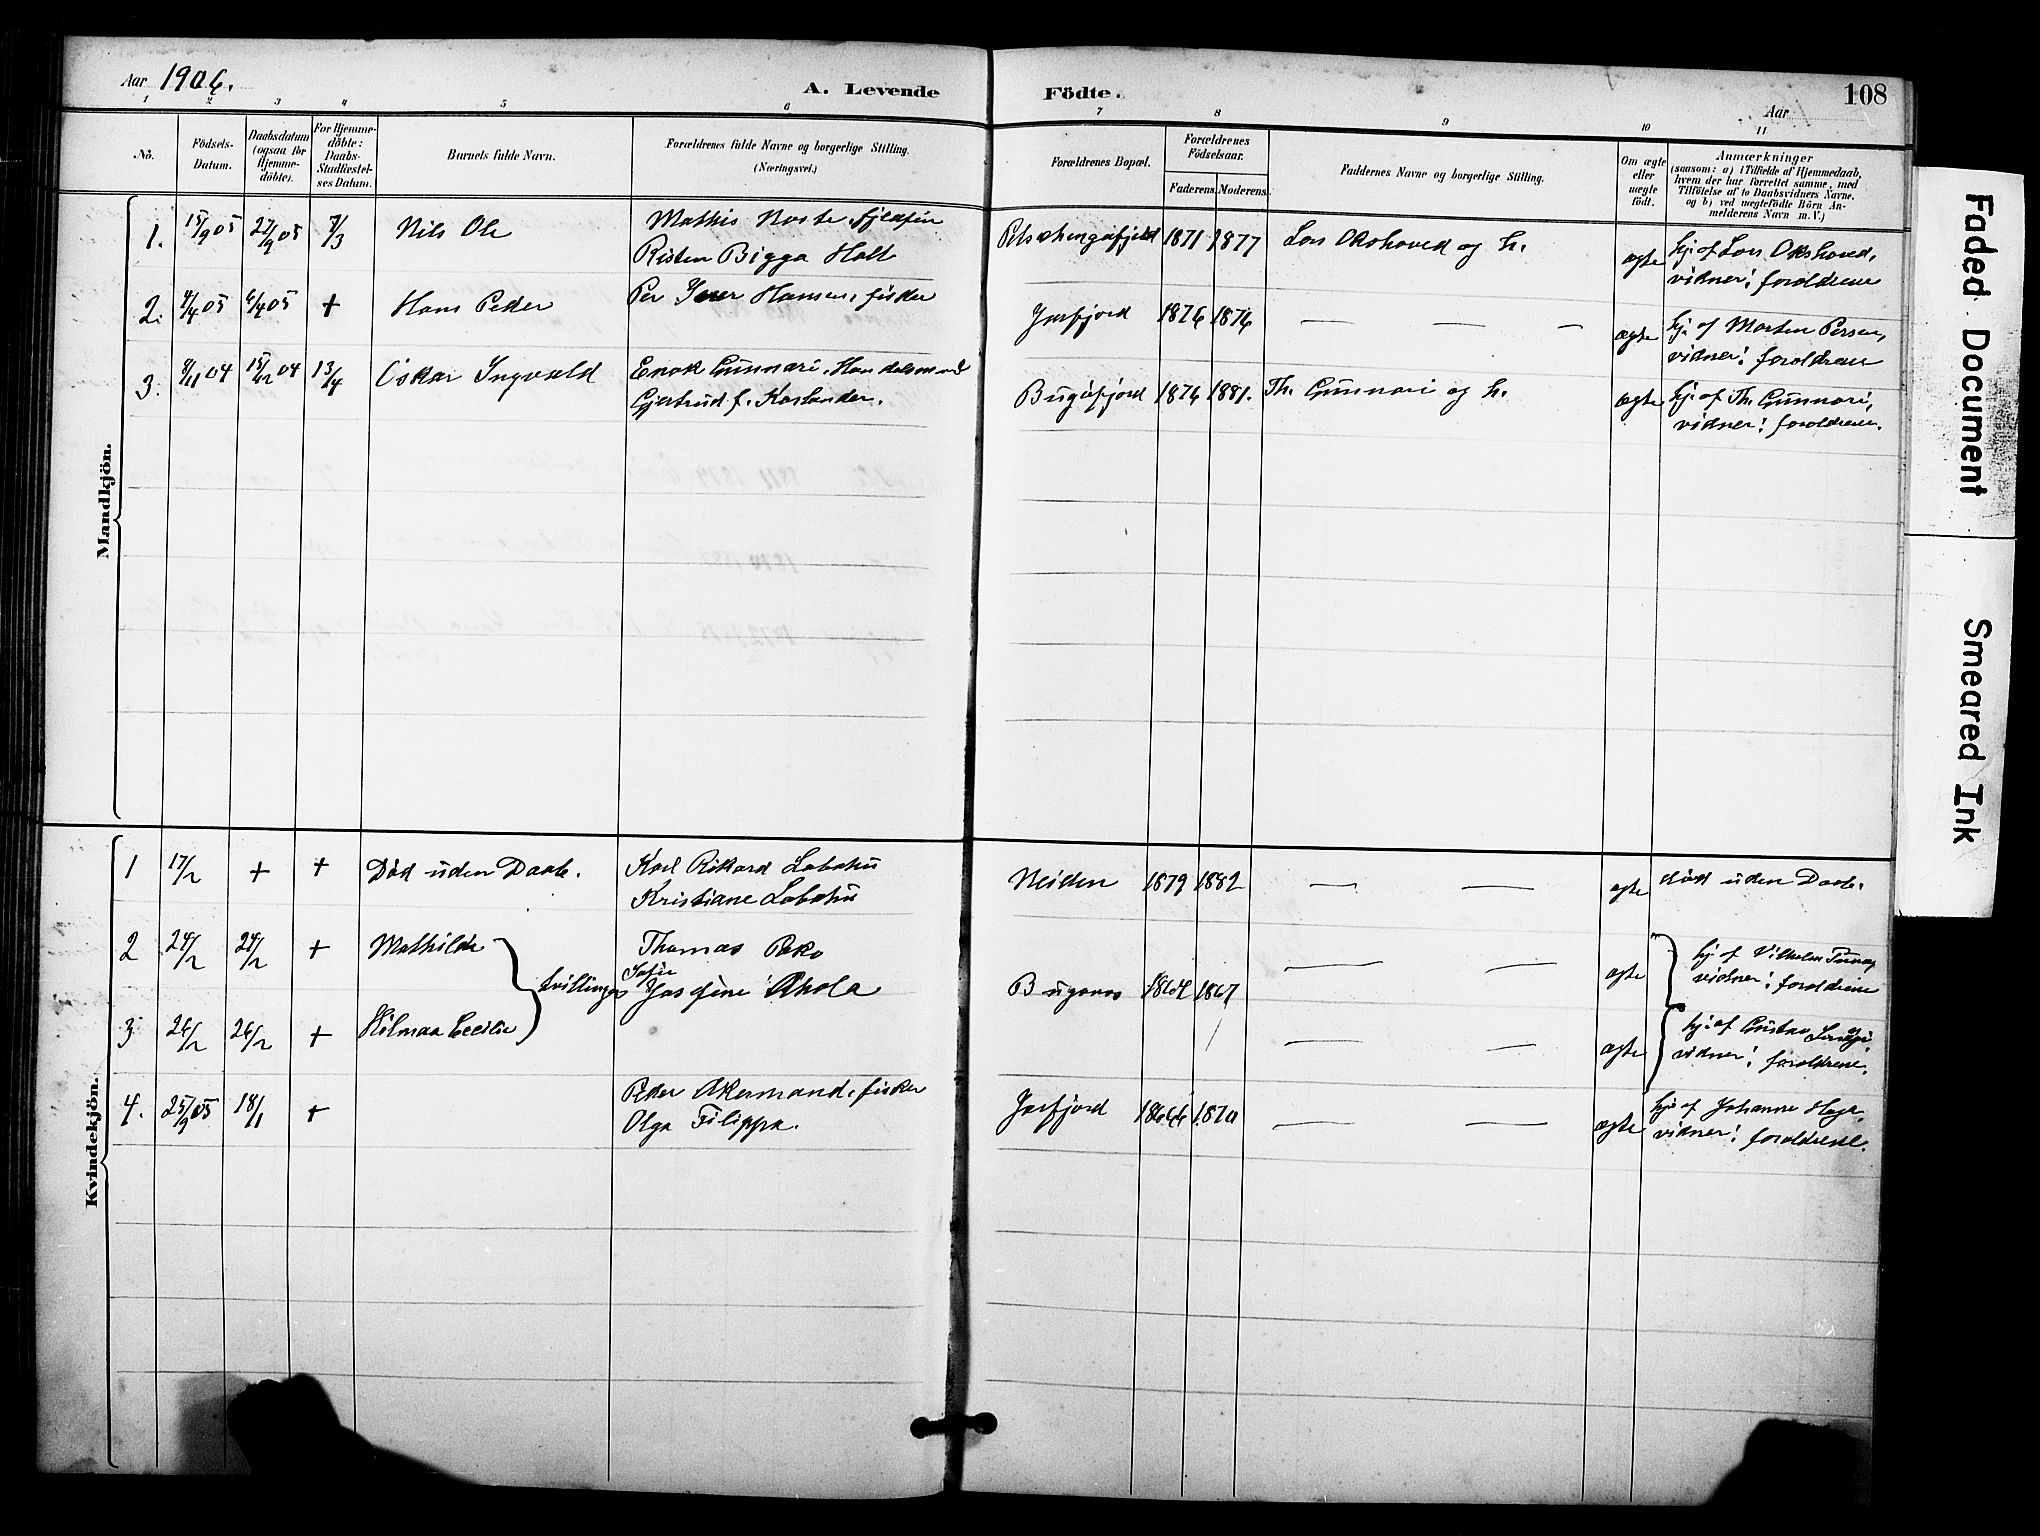 Aar 1906.
A. Levende
Födte.
Aar
108
1 2 3 4 5 6 7 8 9 10 11
No.
Födsels-
Datum.
Daabsdatum
(ogsaa for
Hjemme-
döbte).
For Hjemme-
döbte:
Daabs-
Stadfæstel-
ses Datum.
Barnets fulde Navn.
Forældrenes fulde Navne og borgerlige Stilling.
(Næringsvei.)
Forældrenes Bopæl.
Forældrenes
Födselsaar.
Faderens.
Moderens.
Faddernes Navne og borgerlige Stilling.
Om ægte
eller
uægte
födt.
Anmærkninger
(saasom: a) i Tilfælde af Hjemmedaab,
hvem der har forrettet samme, med
Tilföielse af to Daabsvidners Navne,
og b) ved uægtefödte Börn An-
melderens Navn m. V.)
Mandkjön.
1. 15/9 05 27/9 05 7/3 Nils Ole Mathis Noste, fjelfin 1871 1877 Lars Okshoved og h. ægte hj. af Lars Okshoved,
Risten Bigga Halt vidner: foroldrene
2. 4/4 05 6/4 05 + Hans Peder Per Iver Hansen, fisker Jarfjord 1876 1876 — — — ægte hj. af Morten Persen,
vidner: foroldrene
3. 8/11 04 15/12 04 13/4 Oskar Ingvald Enok Gunnari, Handelsmand Bugöfjord 1876 1881. Th. Gunnari og h. ægte hj. af Th. Gunnari,
Gjertrud f. Karlander. vidner: foroldrene.
Kvindekjön.
1 17/2 + + Död uden Daab. Karl Rikard Labahu Neiden 1879 1882 — — ægte död uden Daab.
Kristiane Labahu
2 24/2 24/2 + Mathilde Thomas Peko — — ægte hj. af Vilhelm
tvillinger Josefine Ahola Bugönes 1867 vidner: foroldrene
3 26/2 26/2 + Hilmaa Cecilie — — ægte hj. af Gustav
vidner: foroldrene.
4. 25/9 05 18/1 + Peder Akermand, fisker Jarfjord 1870 — — ægte hj. af Johanne
Olga Filippa. vidner: foroldrene.
Faded Document
Smeared Ink